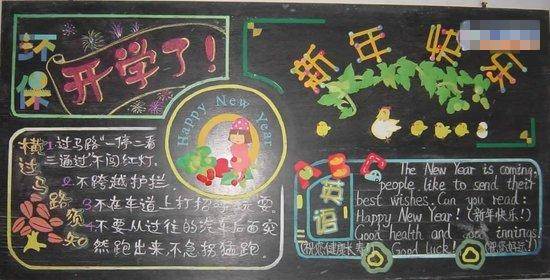 环保
开学了!
新年
Happy New Year
横过马路须知
1 过马路“一停二看
三通过”不闯红灯.
2 不跨越护拦.
3 不在车道上打招呼玩耍.
4 不要从过往的汽车后面突
然跑出来,不急拐猛跑.
英语
The New Year is coming,
people like to send their
best wishes. Can you read:
Happy New Year! (新年快乐!)
Good health and good innings!
(祝你健康长寿) Good luck! (祝您好运!)